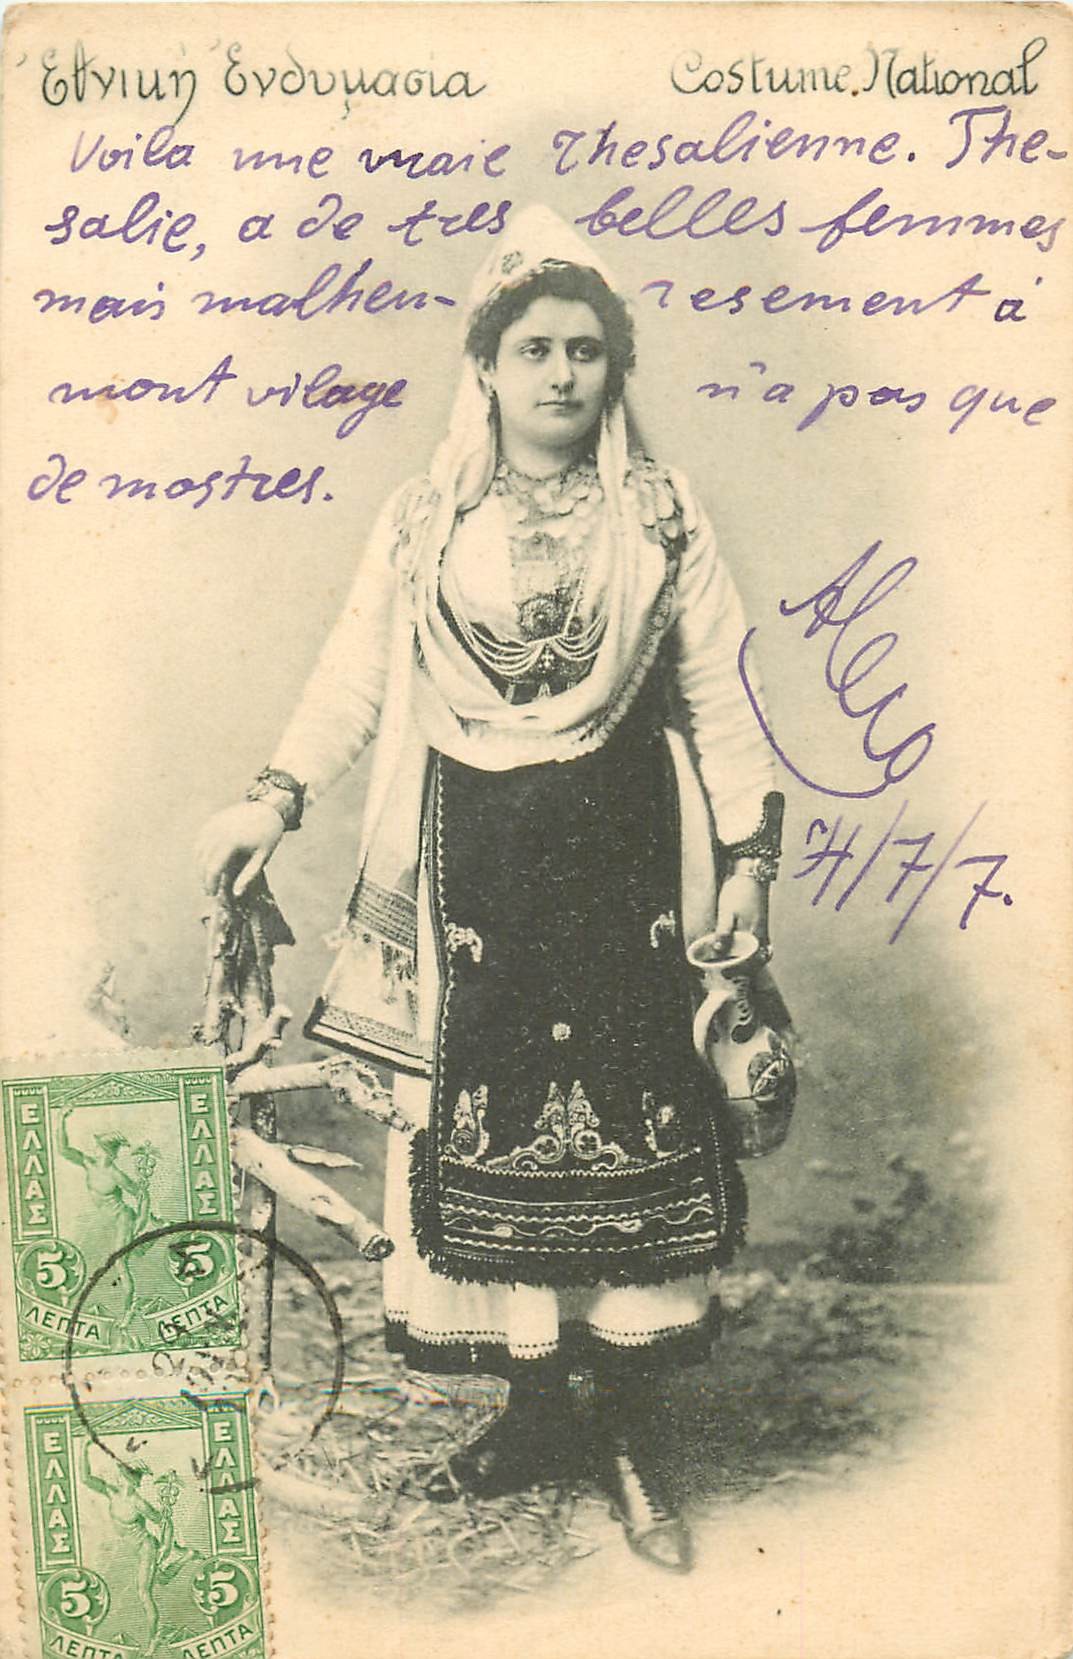 Ἐθνικὴ Ἐνδυμασία Costume National
Voila une vraie Thesalienne. The-
salie, a de tres belles femmes
mais malheu- resement à
mont vilage n'a pas que
de mostres.
7/7.
ΕΛΛΑΣ ΕΛΛΑΣ
5 5
ΛΕΠΤΑ ΛΕΠΤΑ
ΕΛΛΑΣ ΕΛΛΑΣ
5 5
ΛΕΠΤΑ ΛΕΠΤΑ